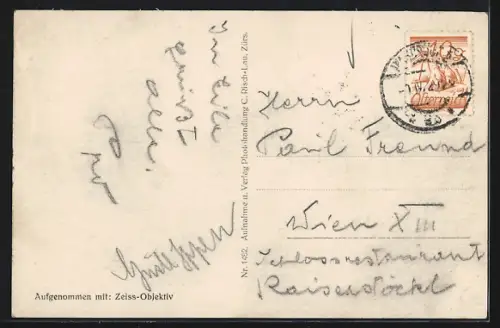 In Eile
grüßt
alle.
Nr. 1482. Aufnahme u. Verlag Photohandlung C. Risch-Lau, Zürs.
Herrn
Paul Freund
Wien XIII
Schlossrestaurant
Kaiserstöckl
Aufgenommen mit: Zeiss-Objektiv